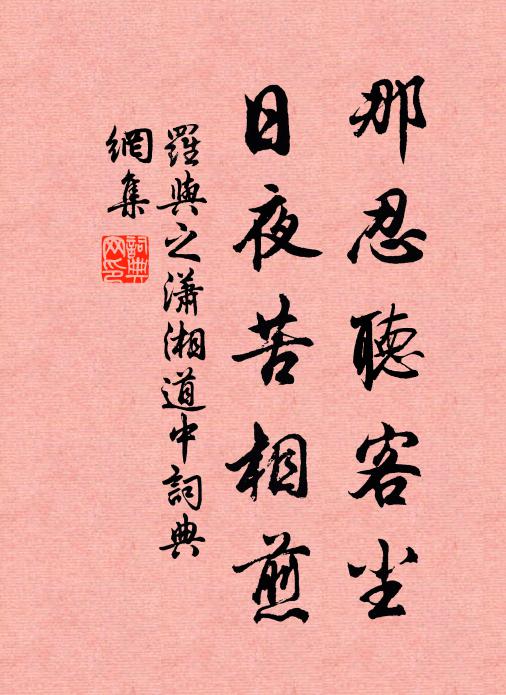 那忍聽客坐
日夜苦相煎
羅與之瀟湘道中詞典
網集
詞典
网印